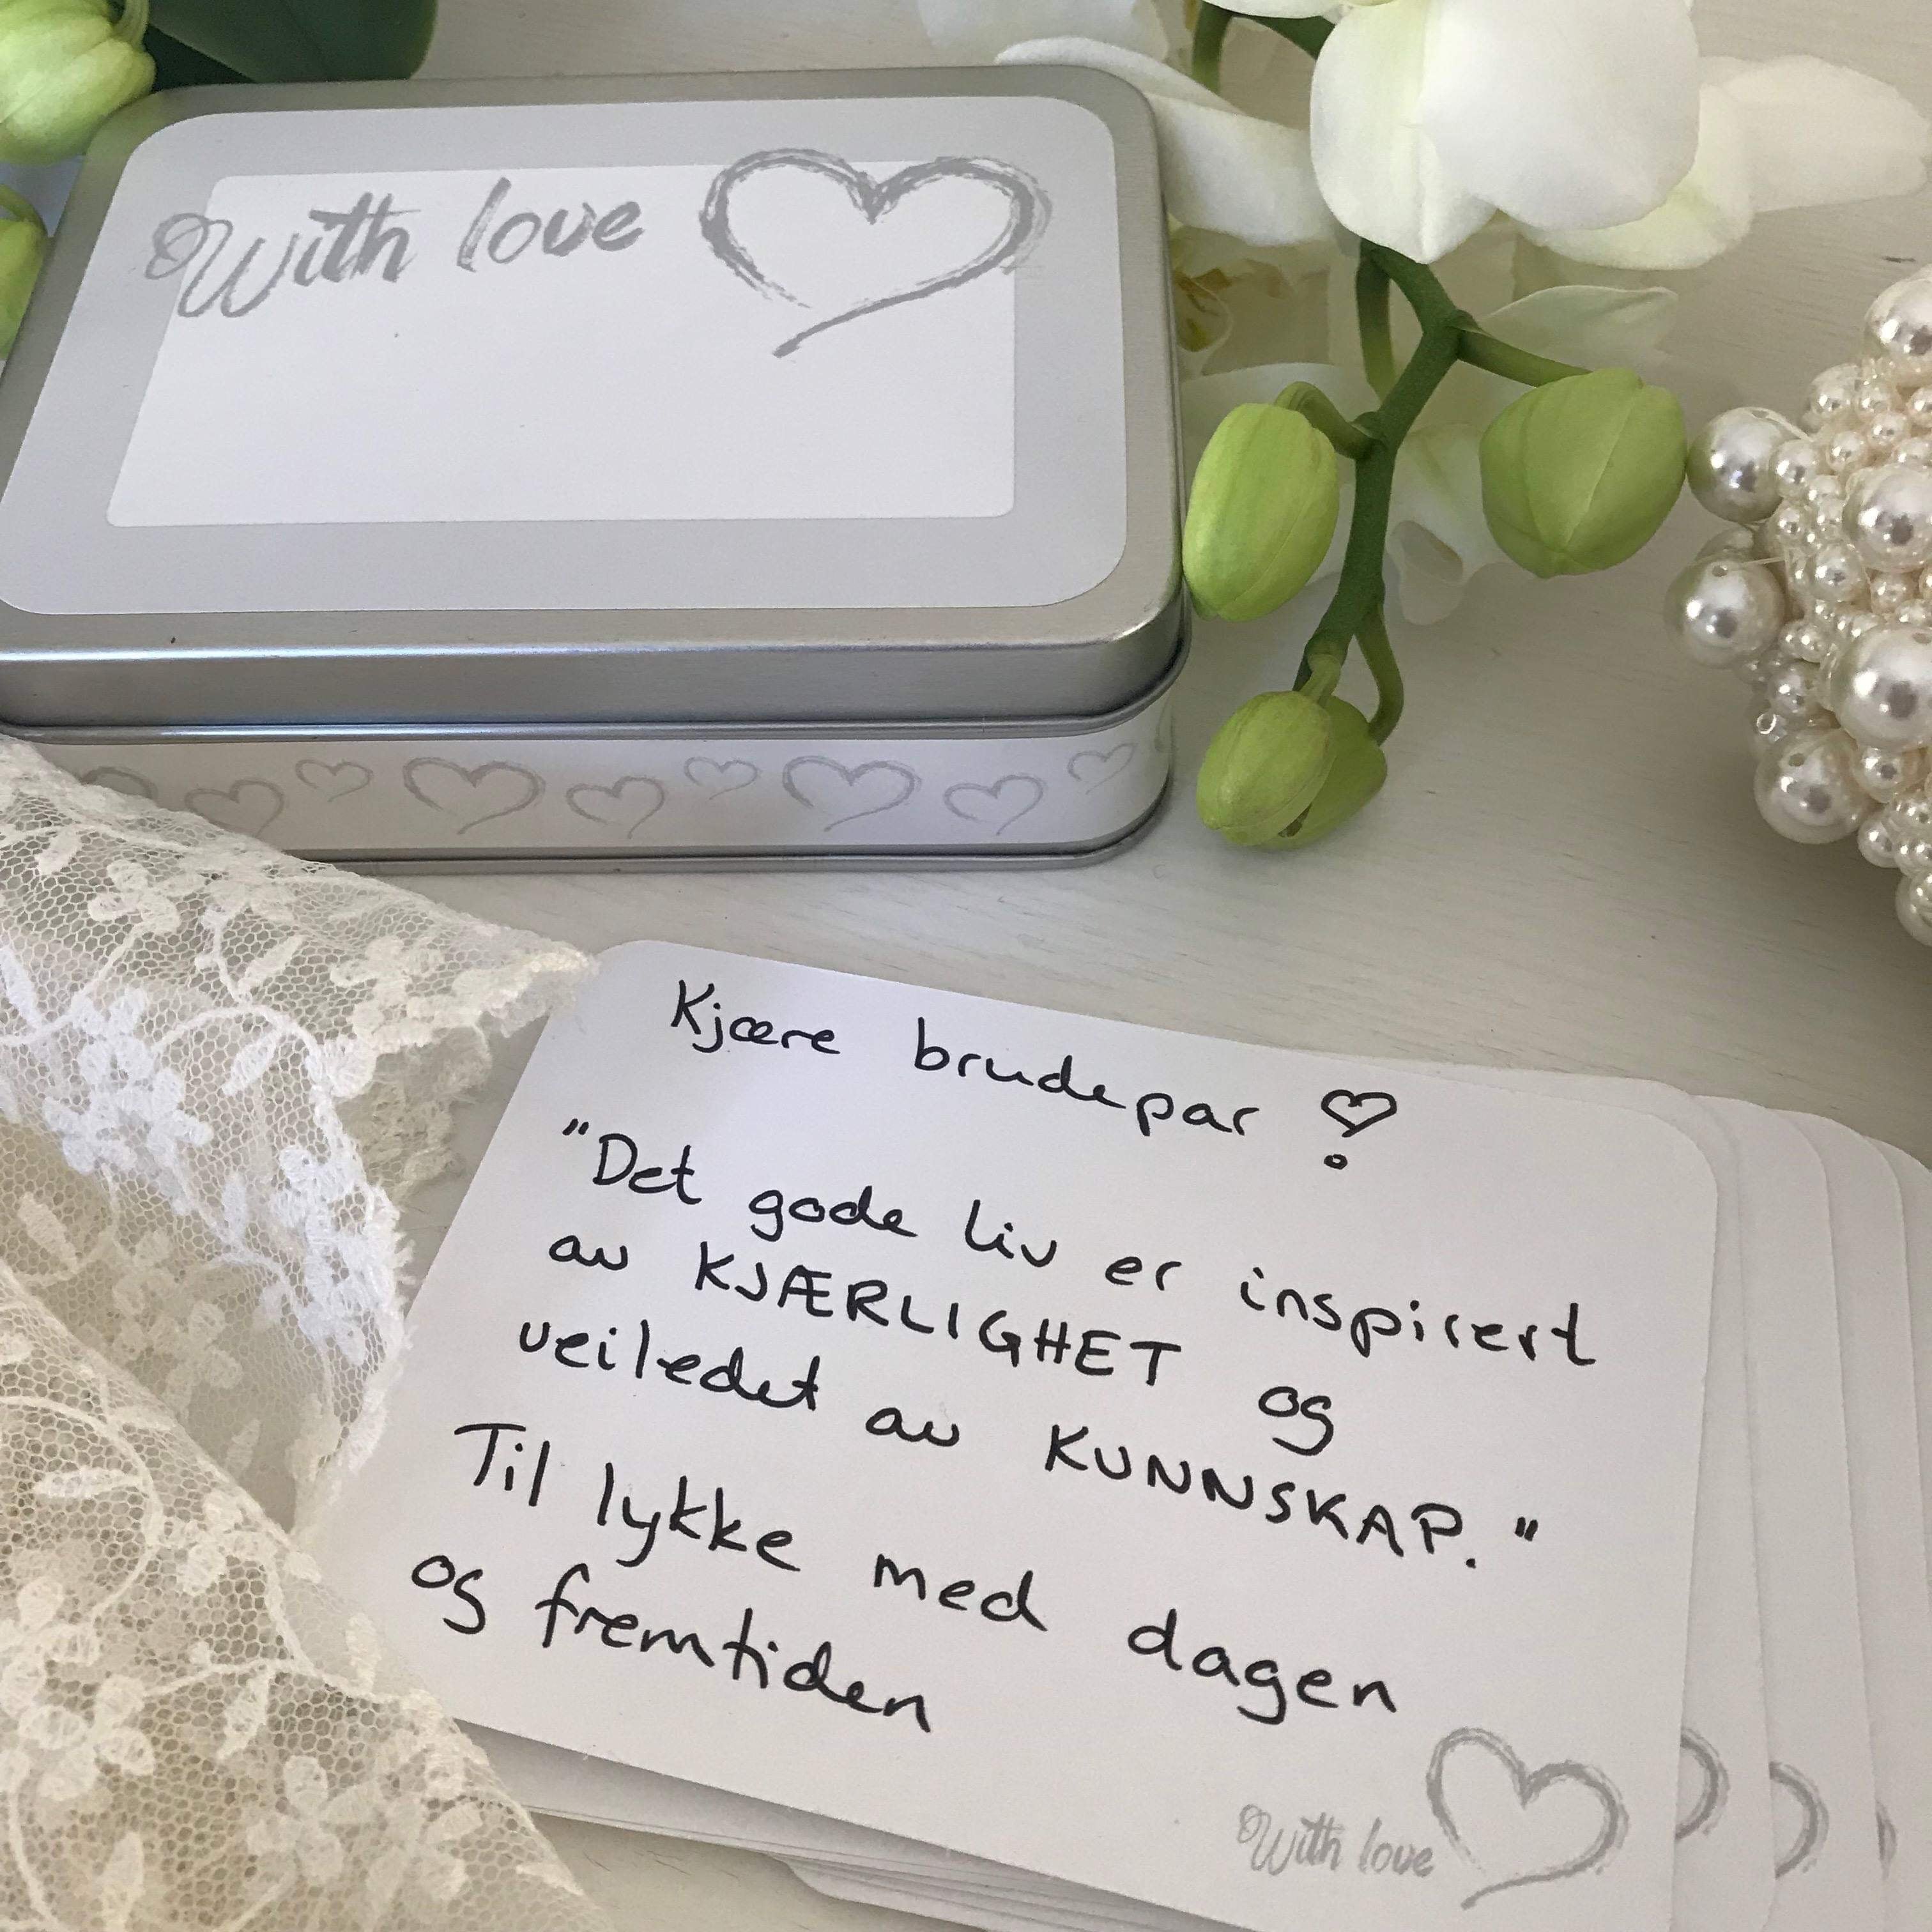 With love
Kjære brudepar
"Det gode liv er inspirert
av KJÆRLIGHET og
veiledet av KUNNSKAP."
Til lykke med dagen
og fremtiden
With love